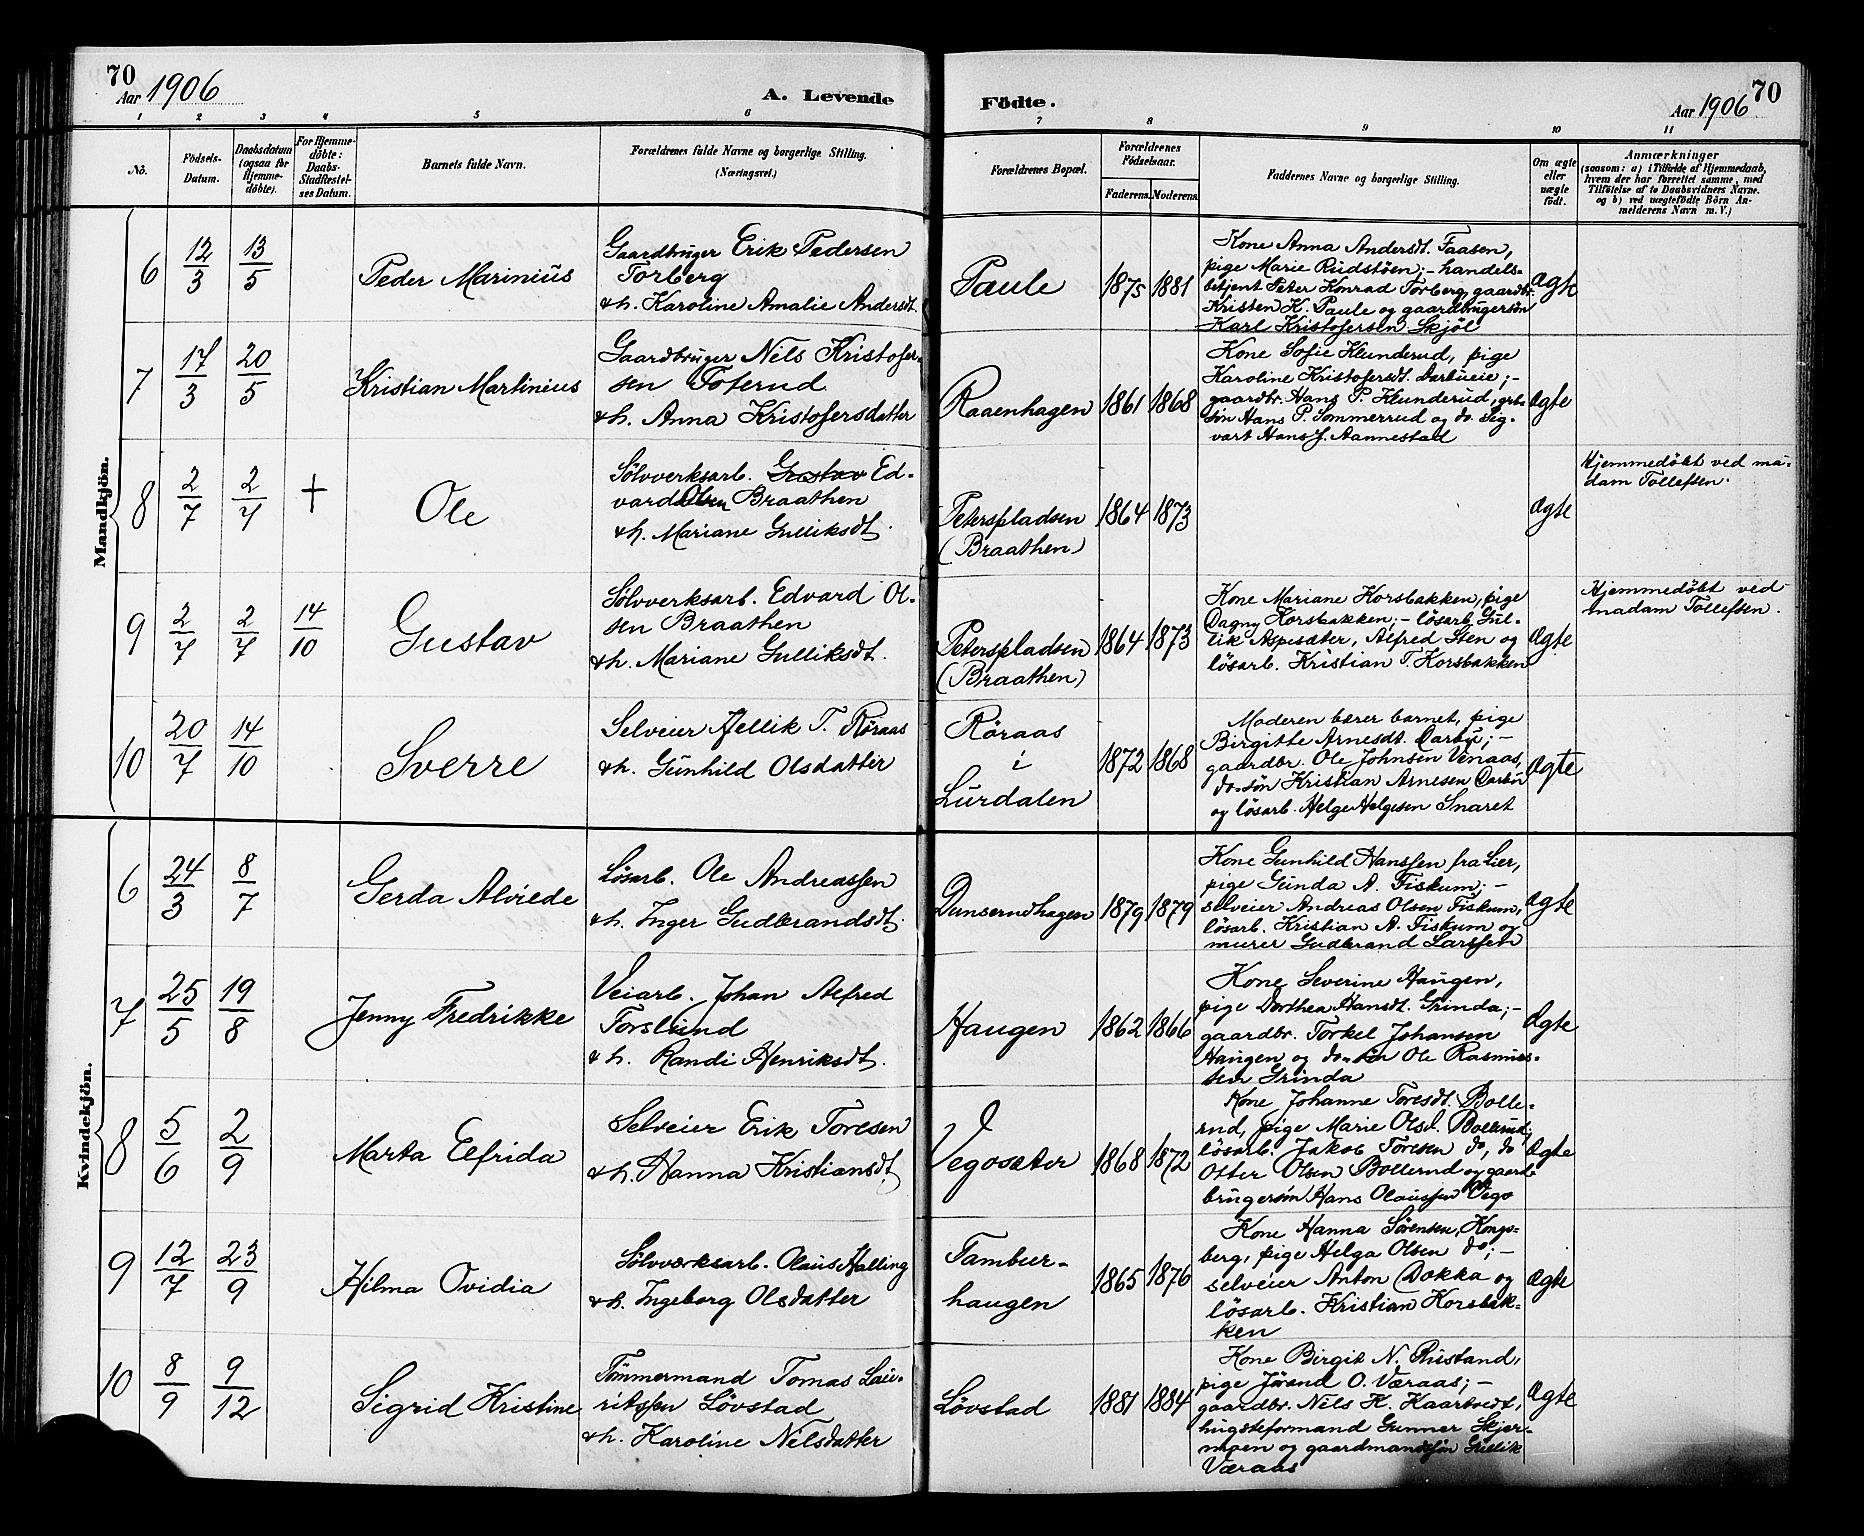 70
Aar 1906
A. Levende
Födte.
Aar 1906
70
1
2
3
4
5
6
7
8
9
10
11
No.
Födsels-
Datum.
Daabsdatum
(ogsaa for
Hjemme-
döbte).
For Hjemme-
döbte:
Daabs-
Stadfæstel-
ses Datum.
Barnets fulde Navn.
Forældrenes fulde Navne og borgerlige Stilling.
(Næringsvei.)
Forældrenes Bopæl.
Forældrenes
Födselsaar.
Faderens.
Moderens.
Faddernes Navne og borgerlige Stilling.
Om ægte
eller
uægte
født.
Anmærkninger
(saasom: a) i Tilfælde af Hjemmedaab,
hvem der har forrettet samme, med
Tilföielse af to Daabsvidners Navne.
og b) ved uægtefödte Börn An-
melderens Navn m. V.)
Mandkjön.
6
12/3
13/5
Peder Marinius
Gaardbruger Erik Pedersen
Torberg
& h. Karoline Amalie Andersdt.
Paule
1875
1881
Kone Anna Andersdt. Faasen,
pige Marie Rudstöen; - handels-
betjent Peter Konrad Torberg, gaardbr.
Kristen K. Paule og gaardbrugersön
Karl Kristofersen Skjöl
ægte
7
17/3
20/5
Kristian Martinius
Gaardbruger Nils Kristofer-
sen Foferud
& h. Anna Kristofersdatter
Raaenhagen
1861
1868
Kone Sofie Klunderud, pige
Karoline Kristofersdt. Darbueie; -
gaardbr. Hans P. Klunderud, grb-
sön Hans P. Sommerrud og do. Sig-
vart Hans J. Aannestad
ægte
8
2/7
2/7
+
Ole
Sølvverksarb. Gustav Ed-
vard Olsen Braathen
& h. Mariane Gulliksdt.
Peterspladsen
(Braathen)
1864
1873
ægte
Hjemmedöbt ved ma-
dam Tollefsen.
9
2/7
2/7
14/10
Gustav
Sølvverksarb. Edvard Ol-
sen Braathen
& h. Mariane Gulliksdt.
Peterspladsen
(Braathen)
1864
1873
Kone Mariane Korsbakken, pige
Dagny Korsbakken; - lösarb. Gul-
lik Aspesæter, Alfred Sten og
lösarb. Kristian T. Korsbakken
ægte
Hjemmedöbt ved
madam Tollefsen.
10
20/7
14/10
Sverre
Selveier Hellik T. Röraas
& h. Gunhild Olsdatter
Röraas
i
Lurdalen
1872
1868
Moderen bærer barnet, pige
Birgitte Arnesdt. Darbu; -
gaardbr. Ole Johnsen Venaas,
do-sön Kristian Arnesen Darbu
og lösarb. Helge Helgesen Snaret
ægte
Kvindekjön.
6
24/3
8/7
Gerda Alvilde
Lösarb. Ole Andreassen
& h. Inger Gudbrandsdt.
Dunserudhagen
1879
1879
Kone Gunhild Hanssen fra Lier,
pige Gunda A. Fiskum; -
selveier Andreas Olsen Fiskum,
lösarb. Kristian A. Fiskum og
murer Gudbrand Larssen
ægte
7
25/5
19/8
Jenny Fredrikke
Veiarb. Johan Alfred
Forslund
& h. Randi Henriksdt.
Haugen
1862
1866
Kone Severine Haugen,
pige Dorthea Hansdt. Grinda; -
gaardbr. Torkel Johansen
Haugen og do-sön Ole Rasmus-
sen Grinda
ægte
8
5/6
2/9
Marta Elfrida
Selveier Erik Toresen
& h. Hanna Kristiansdt.
Vegosæter
1868
1872
Kone Johanne Toresdt. Bolle-
rud, pige Marie Olsd. Bollerud;
lösarb. Jakob Toresen do, do
Otter Olsen Bollerud og gaard-
brugersön Hans Olaussen Vego
ægte
9
12/7
23/9
Hilma Ovidia
Sølvværksarb. Olaus Halling
& h. Ingeborg Olsdatter
Tambur-
haugen
1865
1876
Kone Hanna Sörensen, Kongs-
berg, pige Helga Olsen do; -
selveier Anton Dokka og
lösarb. Kristian Korsbak-
ken
ægte
10
8/9
9/12
Sigrid Kristine
Tömmermand Tomas Lau-
ritssen Lövstad
& h. Karoline Nilsdatter
Lövstad
1881
1884
Kone Birgit N. Rustand,
pige Jörand O. Væraas; -
gaardbr. Nils K. Kaartvedt,
hugsteformand Gunner Skjer-
moen og gaardmandssön Gullik
Væraas
ægte